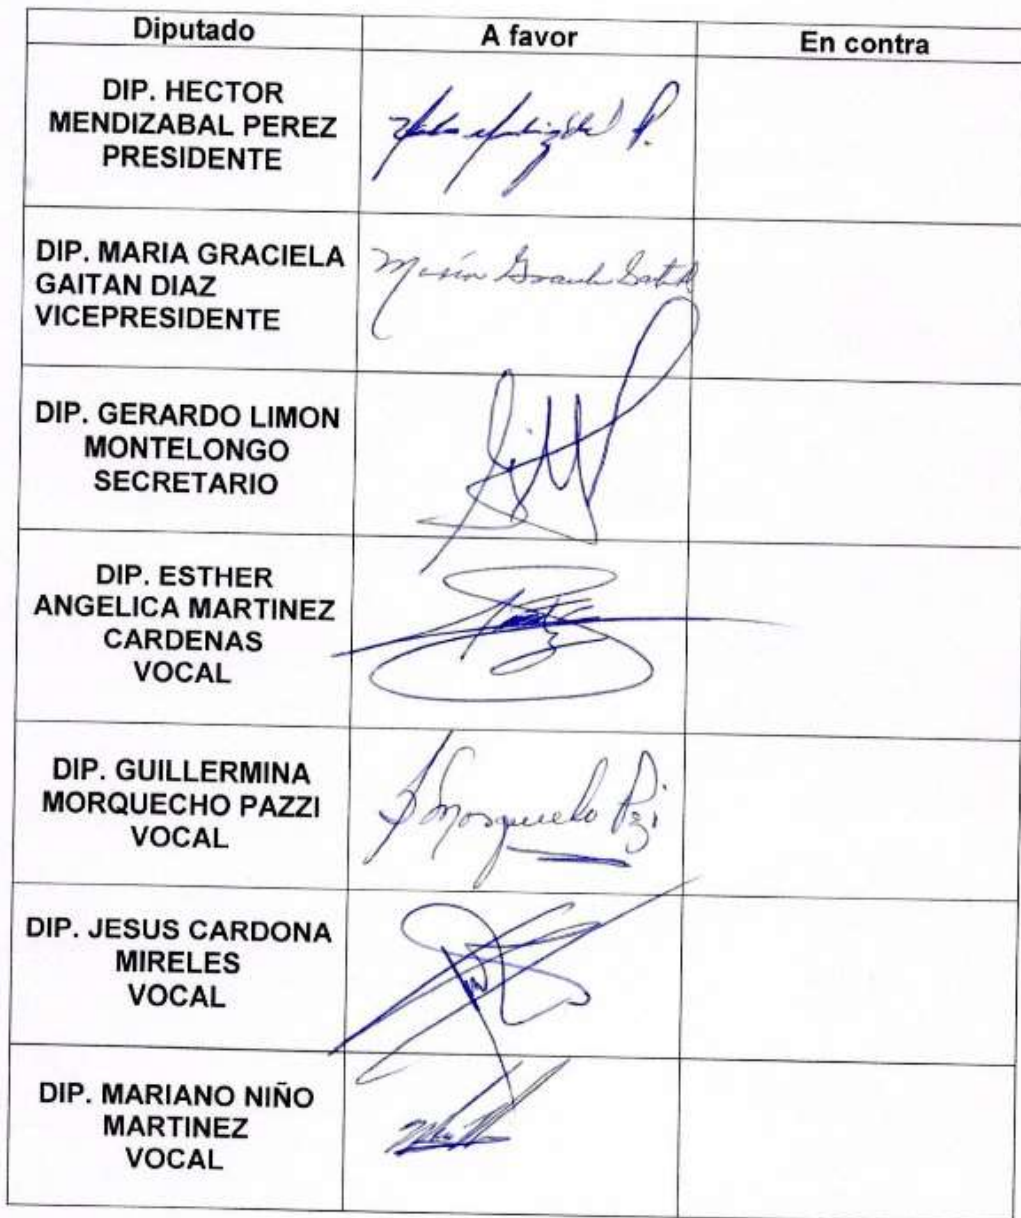 Diputado A favor En contra
DIP. HECTOR
MENDIZABAL PEREZ
PRESIDENTE
DIP. MARIA GRACIELA
GAITAN DIAZ
VICEPRESIDENTE
DIP. GERARDO LIMON
MONTELONGO
SECRETARIO
DIP. ESTHER
ANGELICA MARTINEZ
CARDENAS
VOCAL
DIP. GUILLERMINA
MORQUECHO PAZZI
VOCAL
DIP. JESUS CARDONA
MIRELES
VOCAL
DIP. MARIANO NIÑO
MARTINEZ
VOCAL